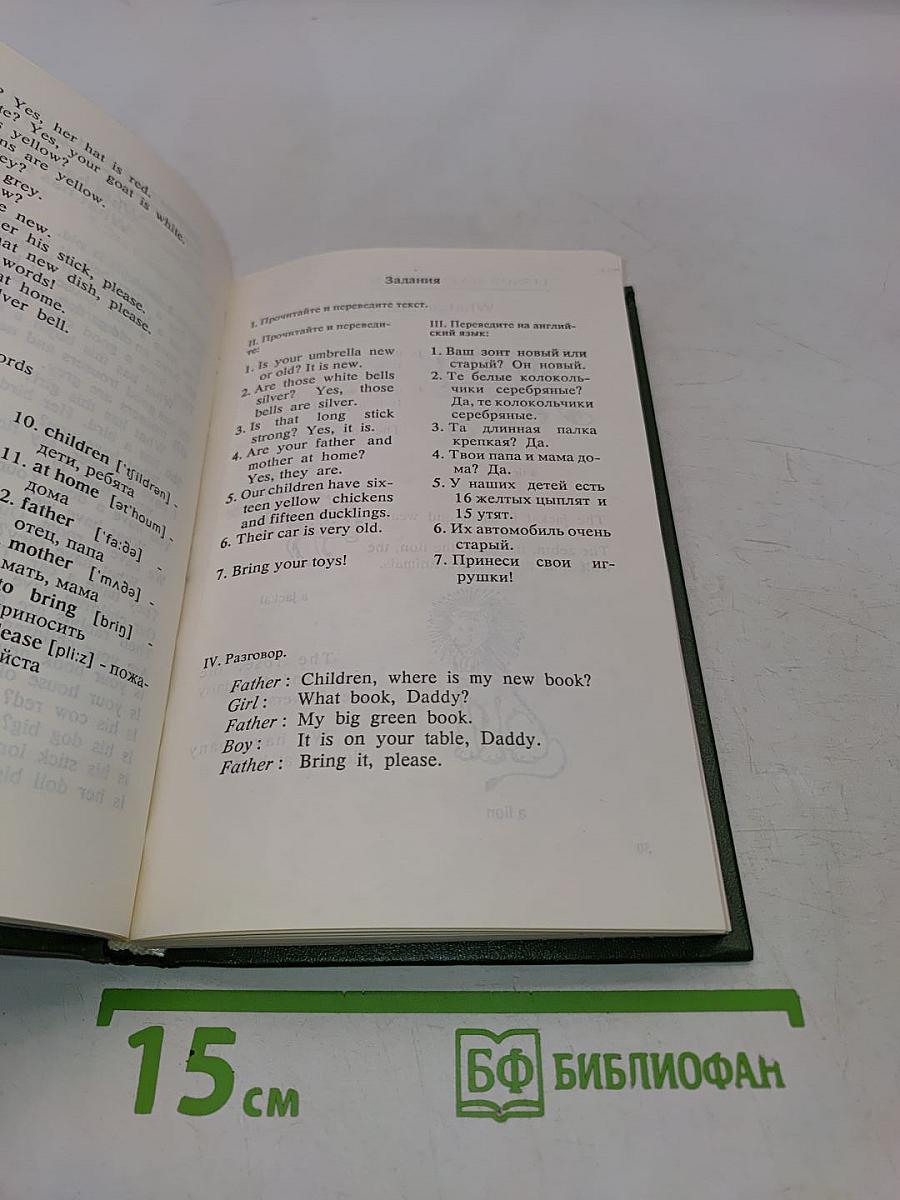 Yes, her hat is red.
Yes, your goat is white.
yellow?
are yellow.
grey.
new.
his stick, please.
new dish, please.
words!
at home.
bell.
10. children ['tʃildrən] -
дети, ребята
11. at home [ət'houm] -
дома
father ['fɑ:ðə] -
отец, папа
mother ['mʌðə] -
мать, мама
to bring [briŋ] -
[pli:z] - пожа-
Задания
I. Прочитайте и переведите текст.
II. Прочитайте и переведи-
те:
1. Is your umbrella new
or old? It is new.
2. Are those white bells
silver? Yes, those
bells are silver.
3. Is that long stick
strong? Yes, it is.
4. Are your father and
mother at home?
Yes, they are.
5. Our children have six-
teen yellow chickens
and fifteen ducklings.
6. Their car is very old.
7. Bring your toys!
III. Переведите на англий-
ский язык:
1. Ваш зонт новый или
старый? Он новый.
2. Те белые колоколь-
чики серебряные?
Да, те колокольчики
серебряные.
3. Та длинная палка
крепкая? Да.
4. Твои папа и мама до-
ма? Да.
5. У наших детей есть
16 желтых цыплят и
15 утят.
6. Их автомобиль очень
старый.
7. Принеси свои иг-
рушки!
IV. Разговор.
Father: Children, where is my new book?
Girl: What book, Daddy?
Father: My big green book.
Boy: It is on your table, Daddy.
Father: Bring it, please.
15 см
БФ БИБЛИОФАН